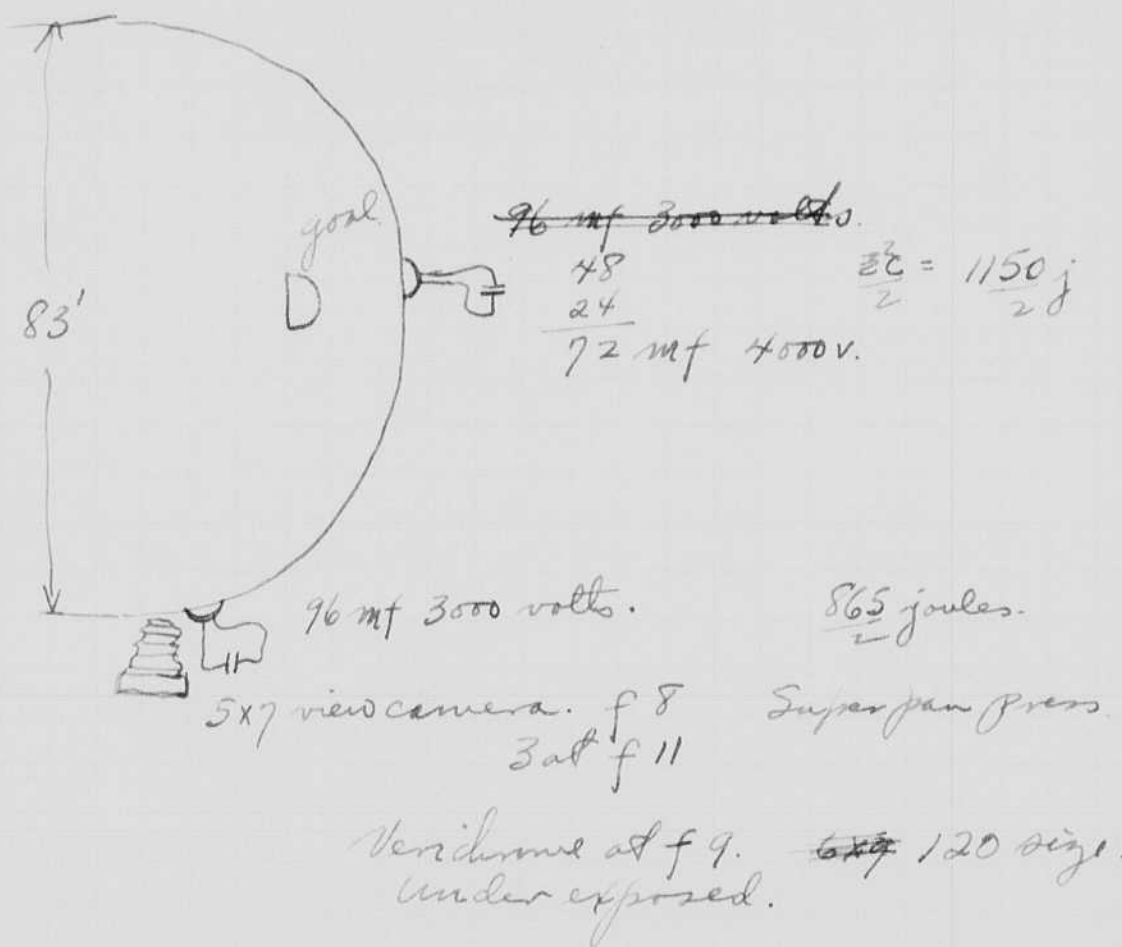 goal
83'
96 mf 3000 volts.
48
24
72 mf 4000 v.
= 1150 j
2 2
96 mf 3000 volts.
865 joules.
2
5x7 view camera. f 8 Super pan press
3 at f 11
at f 9. 6x9 120 size.
under exposed.